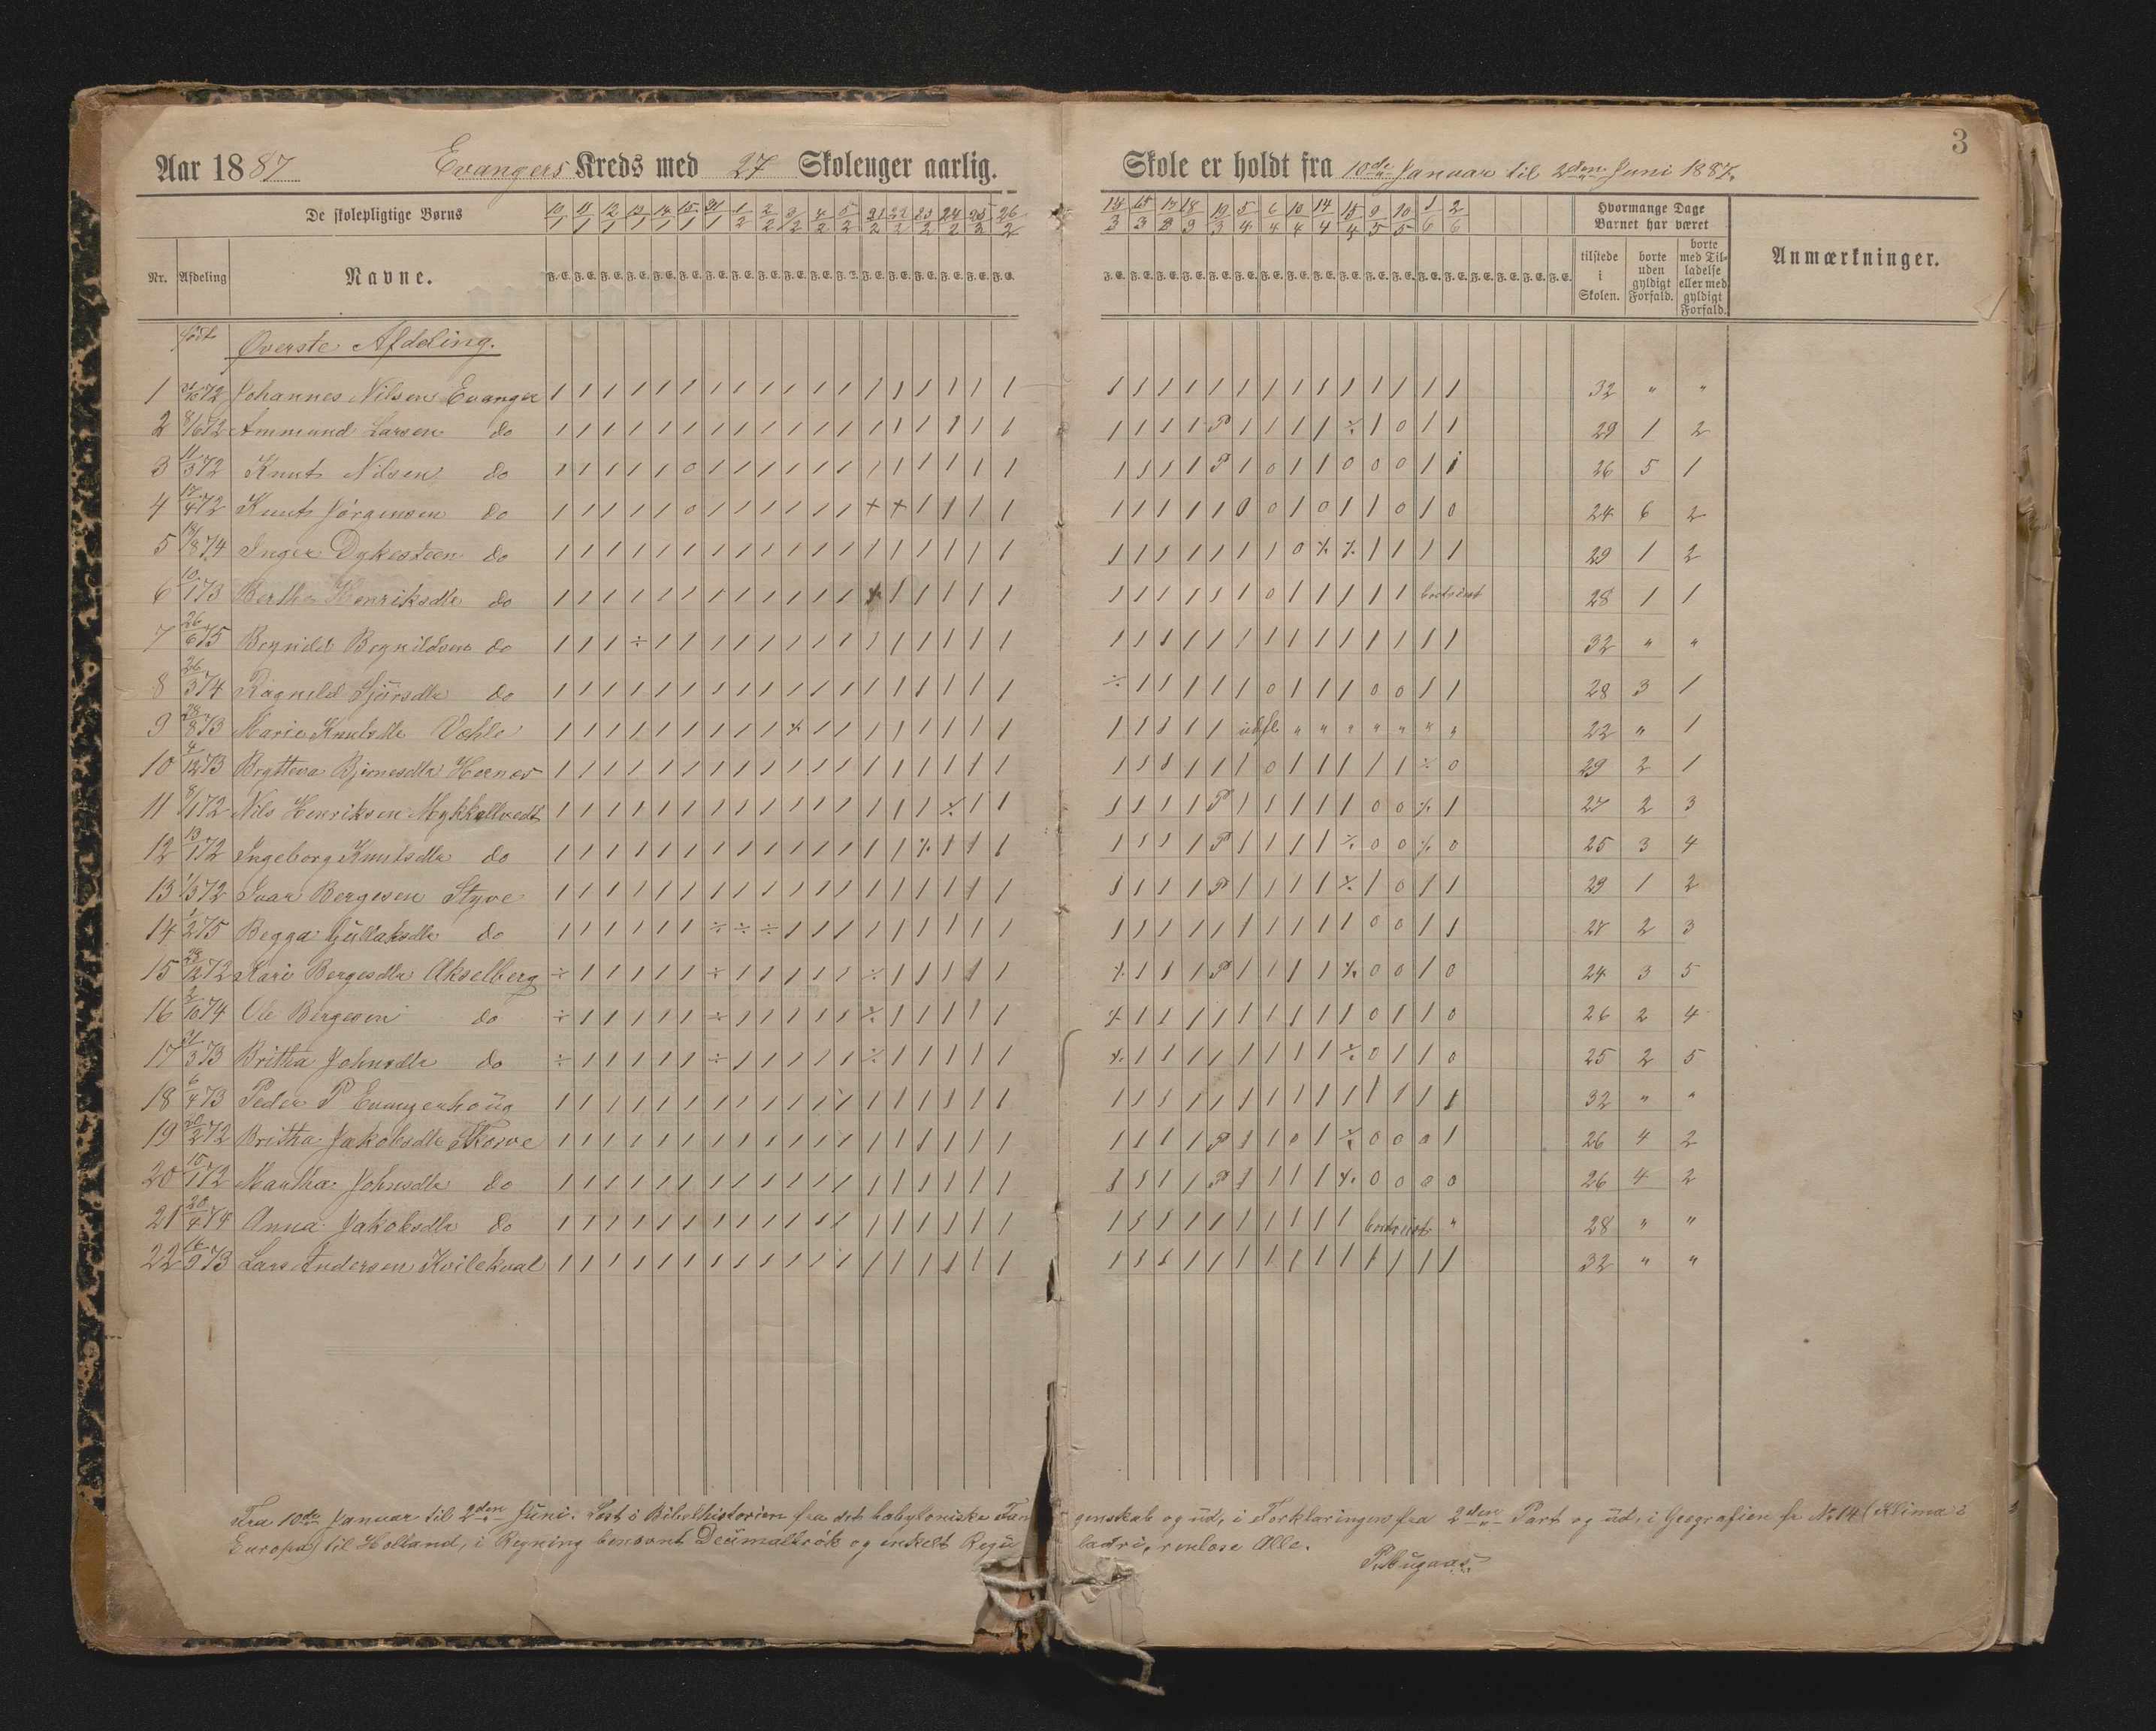 3
Aar 1887 Evangers Kreds med 27 Skolenger aarlig. Skole er holdt fra 10de Januar til 2den Juni 1887.
De skolepligtige Børns 10/1 11/1 12/1 13/1 14/1 15/1 31/1 1/2 2/2 3/2 4/2 5/2 21/2 22/2 23/2 24/2 25/2 26/2 14/3 15/3 17/3 18/3 19/3 5/4 6/4 13/4 14/4 15/4 9/5 10/5 1/6 2/6 Hvormange Dage Barnet har været
Nr. Afdeling Navne. F. E. tilstede i Skolen. borte uden gyldigt Forfald. borte med Tilladelse eller med gyldigt Forfald. Anmærkninger.
født Øverste Afdeling.
1 72 Johannes Nilsen Evanger 32 " "
2 8/6 72 Ammund Larsen do 29 1 2
3 11/3 72 Knut Nilsen do 26 5 1
4 17/4 72 Knut Jørgensen do 24 6 2
5 18/8 74 Inger Dykesteen do 29 1 2
6 10/1 73 Bertha Henriksdtr do 28 1 1
7 26/6 75 Brynild Brynildsen do 32 " "
8 26/3 74 Ragnild Sjursdtr do 28 3 1
9 28/8 73 Marie Knutsdtr Vohle udfl " " " " " " " 22 " 1
10 4/12 73 Brytteva Bjørnesdtr Hernes 29 2 1
11 8/1 72 Nils Henriksen Mykkeltvedt 27 2 3
12 13/1 72 Ingeborg Knutsdtr do 25 3 4
13 1/3 72 Ivar Bergesen Styve 29 1 2
14 1/2 75 Begga Gullaksdtr do 27 2 3
15 23/12 72 Kari Bergesdtr Akselberg 24 3 5
16 2/10 74 Ole Bergesen do 26 2 4
17 21/3 73 Britha Johnsdtr do 25 2 5
18 6/4 73 Peder P Evangerhoug 32 " "
19 22/2 72 Britha Jakobsdtr Skorve 26 4 2
20 10/1 72 Martha Johnsdtr do 26 4 2
21 20/4 74 Anna Jakobsdtr do bortreist " 28 " "
22 14/9 73 Lars Andersen Kvilekval 32 " "
Fra 10de Januar til 2den Juni. Læst i Bibelhistorien fra det babyloniske Fangenskab og ud, i Forklaringen fra 2den Part og ud, i Geografien fr No 14 (Klima i
Europa) til Holland, i Regning benævnt Decimalbrøk og enkelt Regu ladri, renlose Alle.
P. Bugaas